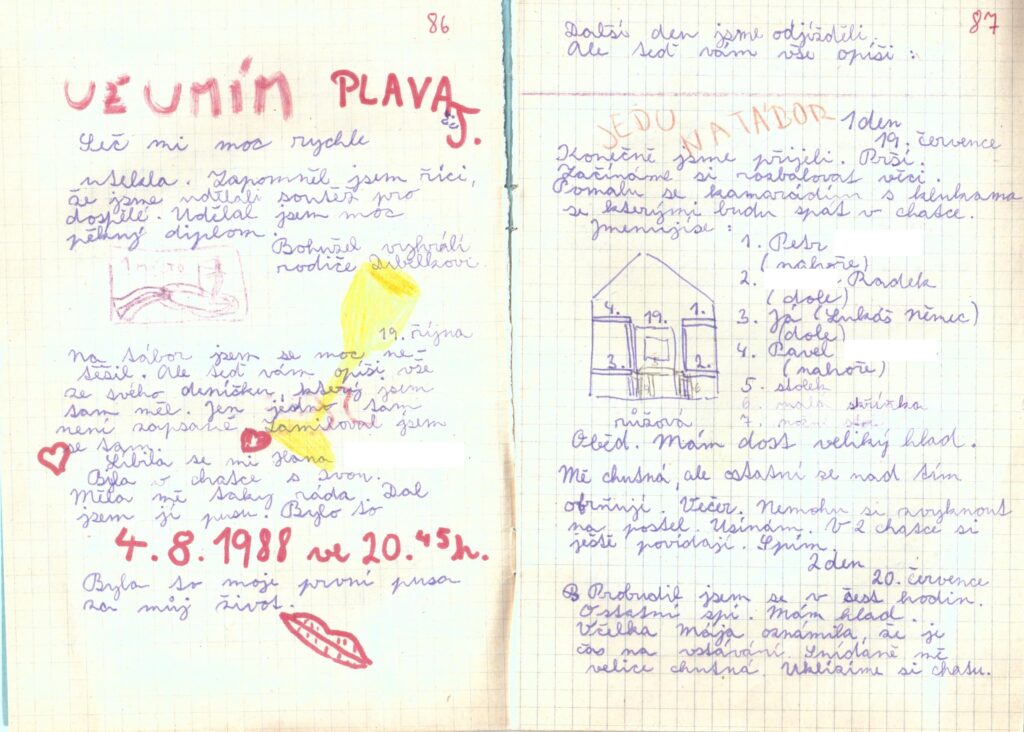 86
UŽ UMÍM PLAVAT.
Leč mi moc rychle
utekla. Zapomněl jsem říci,
že jsme udělali soutěž pro
dospělé. Udělal jsem moc
pěkný diplom.
Bohužel vyhráli
rodiče
1 místo
19. října
Na tábor jsem se moc ne-
těšil. Ale teď vám opíši vše
ze svého deníčku, který jsem
tam měl. Jen jedno tam
není zapsané. Zamiloval jsem
se tam.
Líbila se mi Hana
Byla v chatce s Ivon.
Měla mě taky ráda. Dal
jsem jí pusu. Bylo to
4.8.1988 ve 20.45h.
Byla to moje první pusa
za můj život.
87
Další den jsme odjížděli.
Ale teď vám vše opíši :
JEDU NA TÁBOR
1 den
19. července
Konečně jsme přijeli. Prší.
Začínáme si rozbalovat věci.
Pomalu se kamarádím s klukama
se kterými budu spát v chatce.
Jmenují se :
1. Petr
(nahoře)
2. Radek
(dole)
3. Já (Lukáš Němec)
(dole)
4. Pavel
(nahoře)
5. stolek
6 malá skříňka
7. noční stol.
4. 19. 1.
3. 2.
růžová
Oběd. Mám dost veliký hlad.
Mě chutná, ale ostatní se nad tím
ofrňují. Večer. Nemohu si zvyknout
na postel. Usínám. V 2 chatce si
ještě povídají. Spím.
2 den
20. července
Probudil jsem se v šest hodin.
Ostatní spí. Mám hlad.
Včelka Mája oznámila, že je
čas na vstávání. Snídaně mě
velice chutná. Uklízíme si chatu.